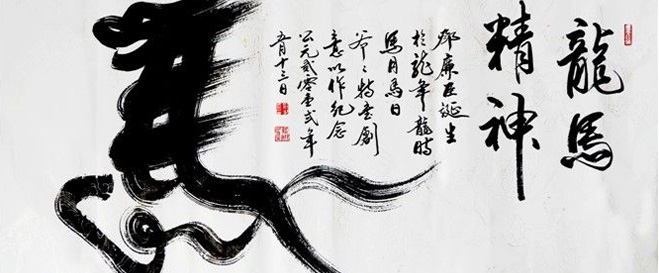 龍馬
精神
鄧廉臣誕生
於龍年龍時
馬月馬日
爷々特
意以作紀念
公元貳零壹弍年
月十三日